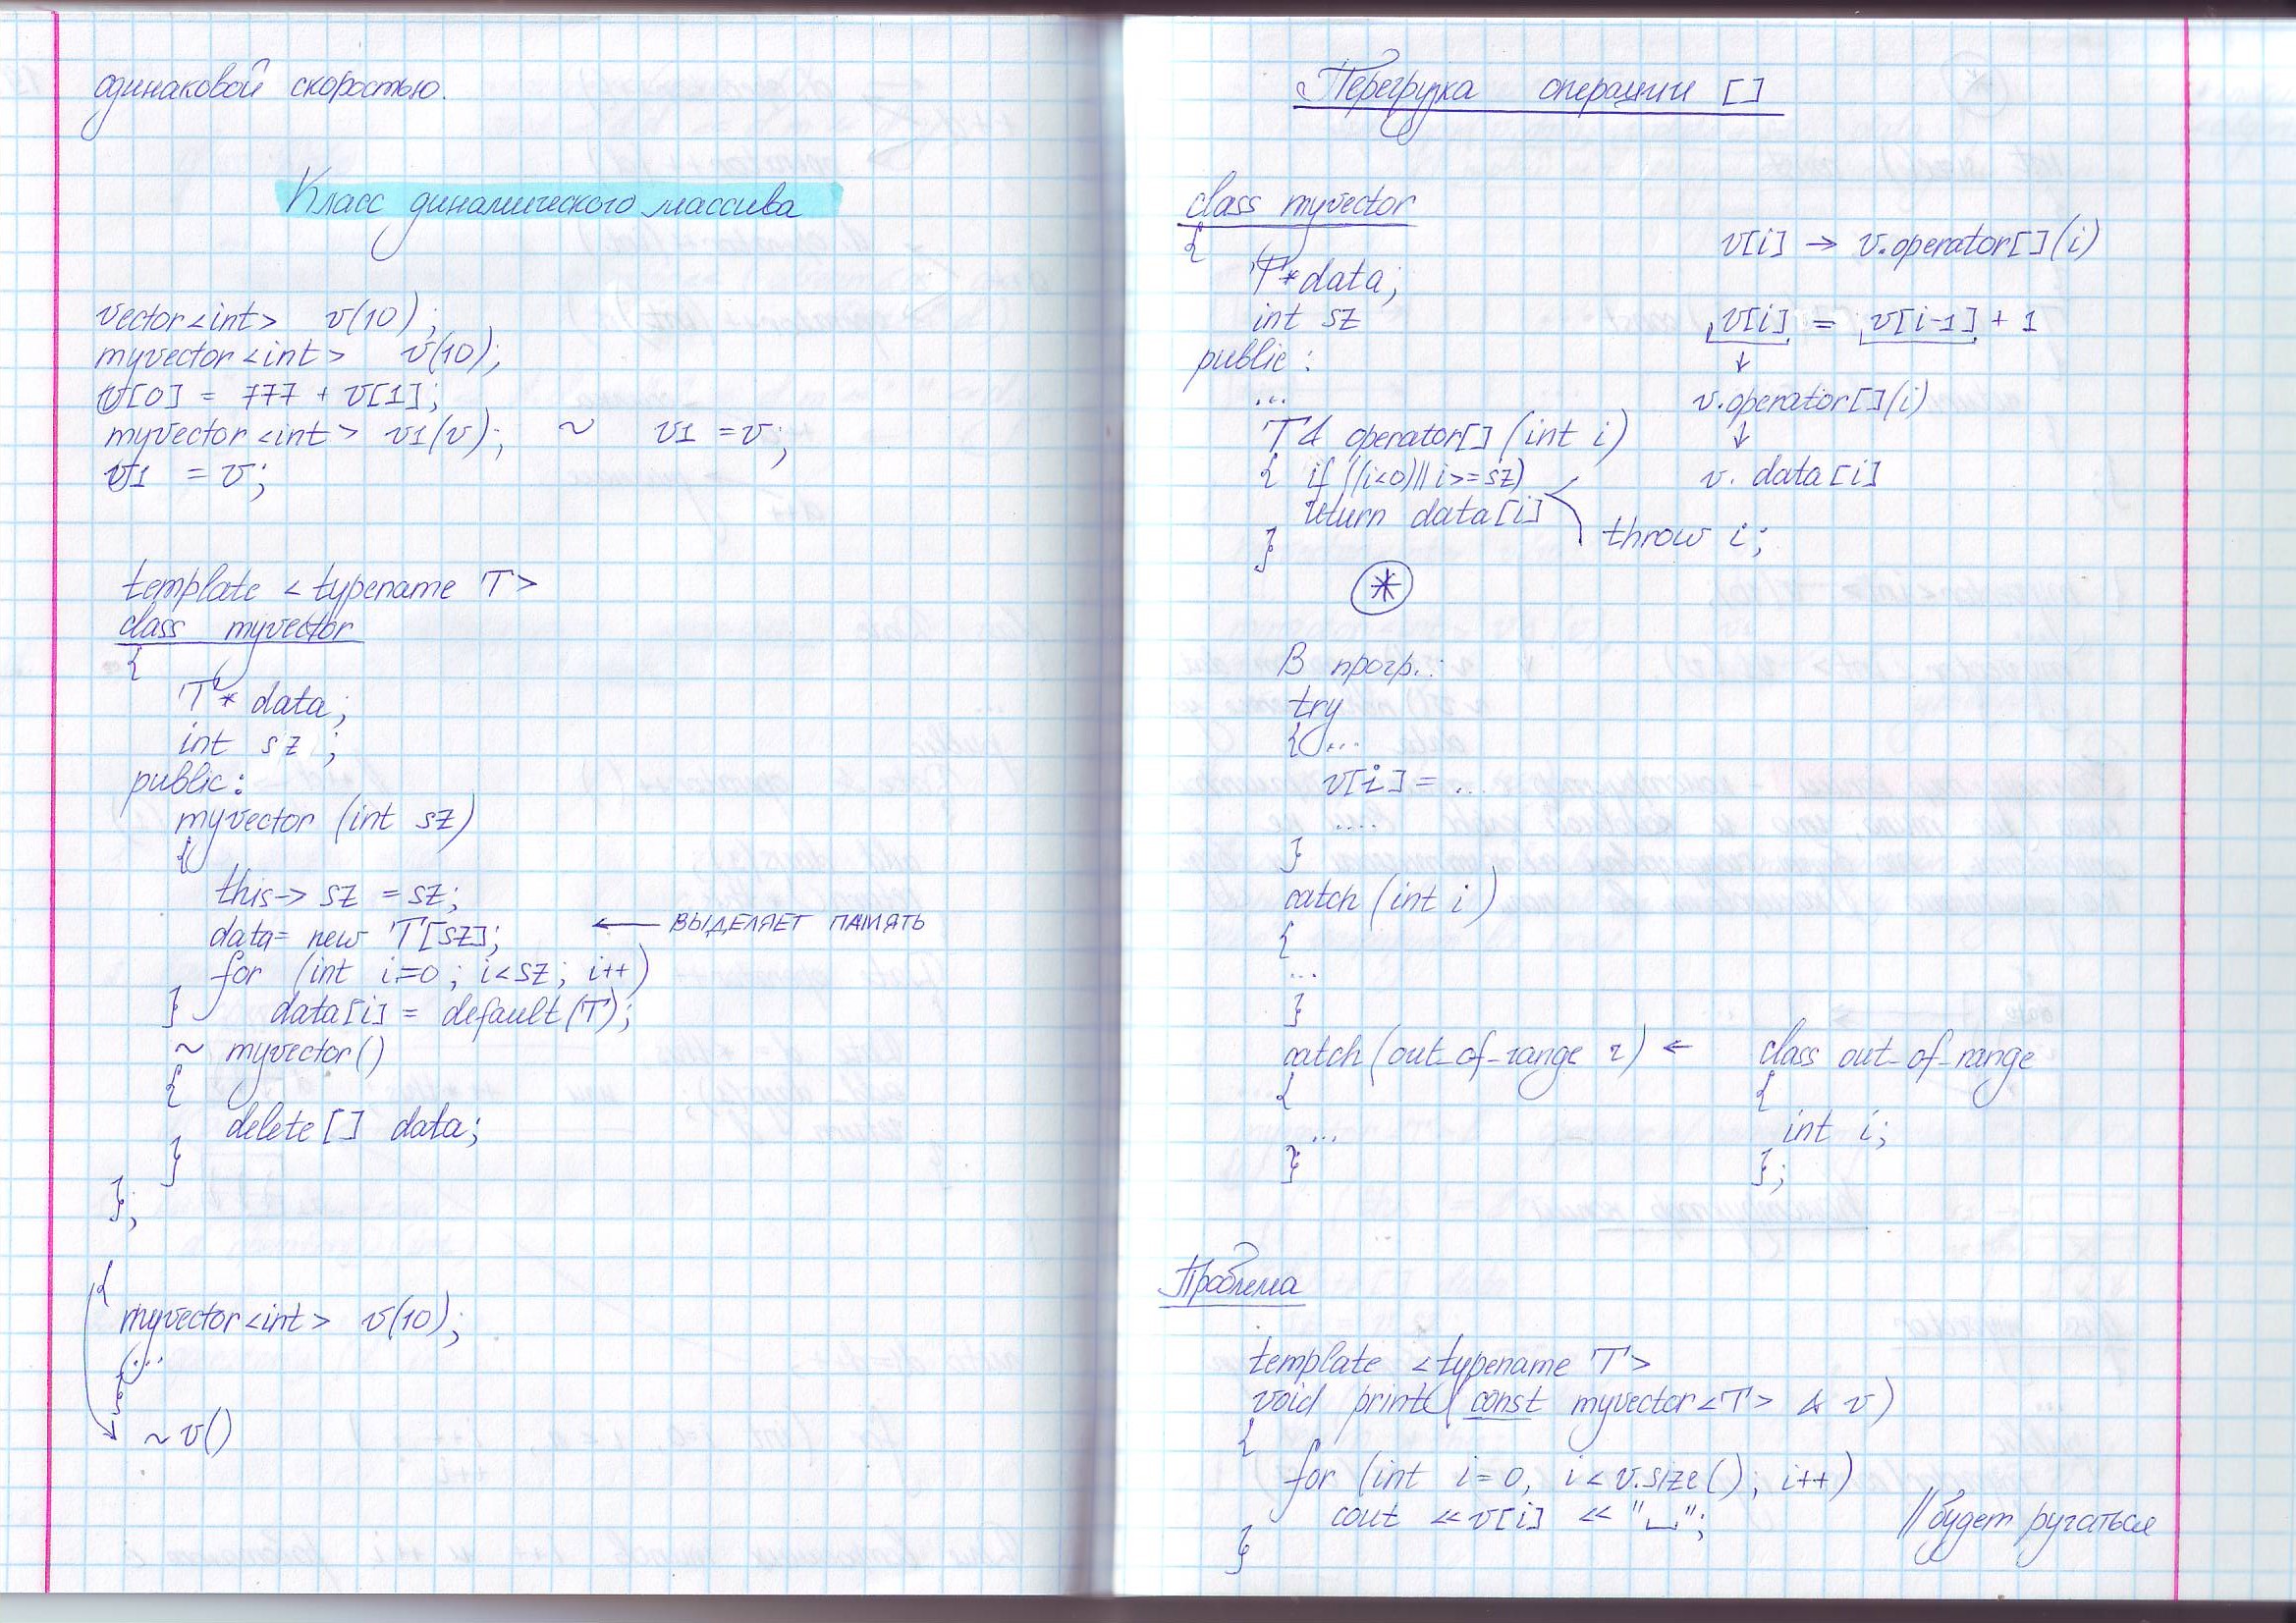 одинаковой скоростью.
Класс динамического массива
vector<int> v(10);
myvector<int> v(10);
v[0] = 777 + v[1];
myvector<int> v1(v); ~ v1 = v;
v1 = v;
template <typename T>
class myvector
{
T* data;
int sz;
public:
myvector (int sz)
{
this-> sz = sz;
data= new T[sz]; ← ВЫДЕЛЯЕТ ПАМЯТЬ
for (int i=0; i<sz; i++)
} data[i] = default(T);
~ myvector()
{
delete[] data;
}
};
{
myvector<int> v(10);
...
}
~v()
Перегрузка операции []
class myvector
{
T* data;
int sz
public:
...
T& operator[] (int i)
{ if ((i<0)||i>=sz)
return data[i]
throw i;
}
*
v[i] → v.operator[](i)
v[i] = v[i-1] + 1
↓
v.operator[](i)
↓
v. data[i]
В прогр.:
try
{ ...
v[i] = ...
....
}
catch (int i)
{
...
}
catch (out_of_range r) ← class out_of_range
{ {
... int i;
} };
Проблема
template <typename T>
void print( const myvector<T> & v)
{
for (int i=0, i<v.size(); i++)
cout << v[i] << "⎵"; //будет ругаться
}